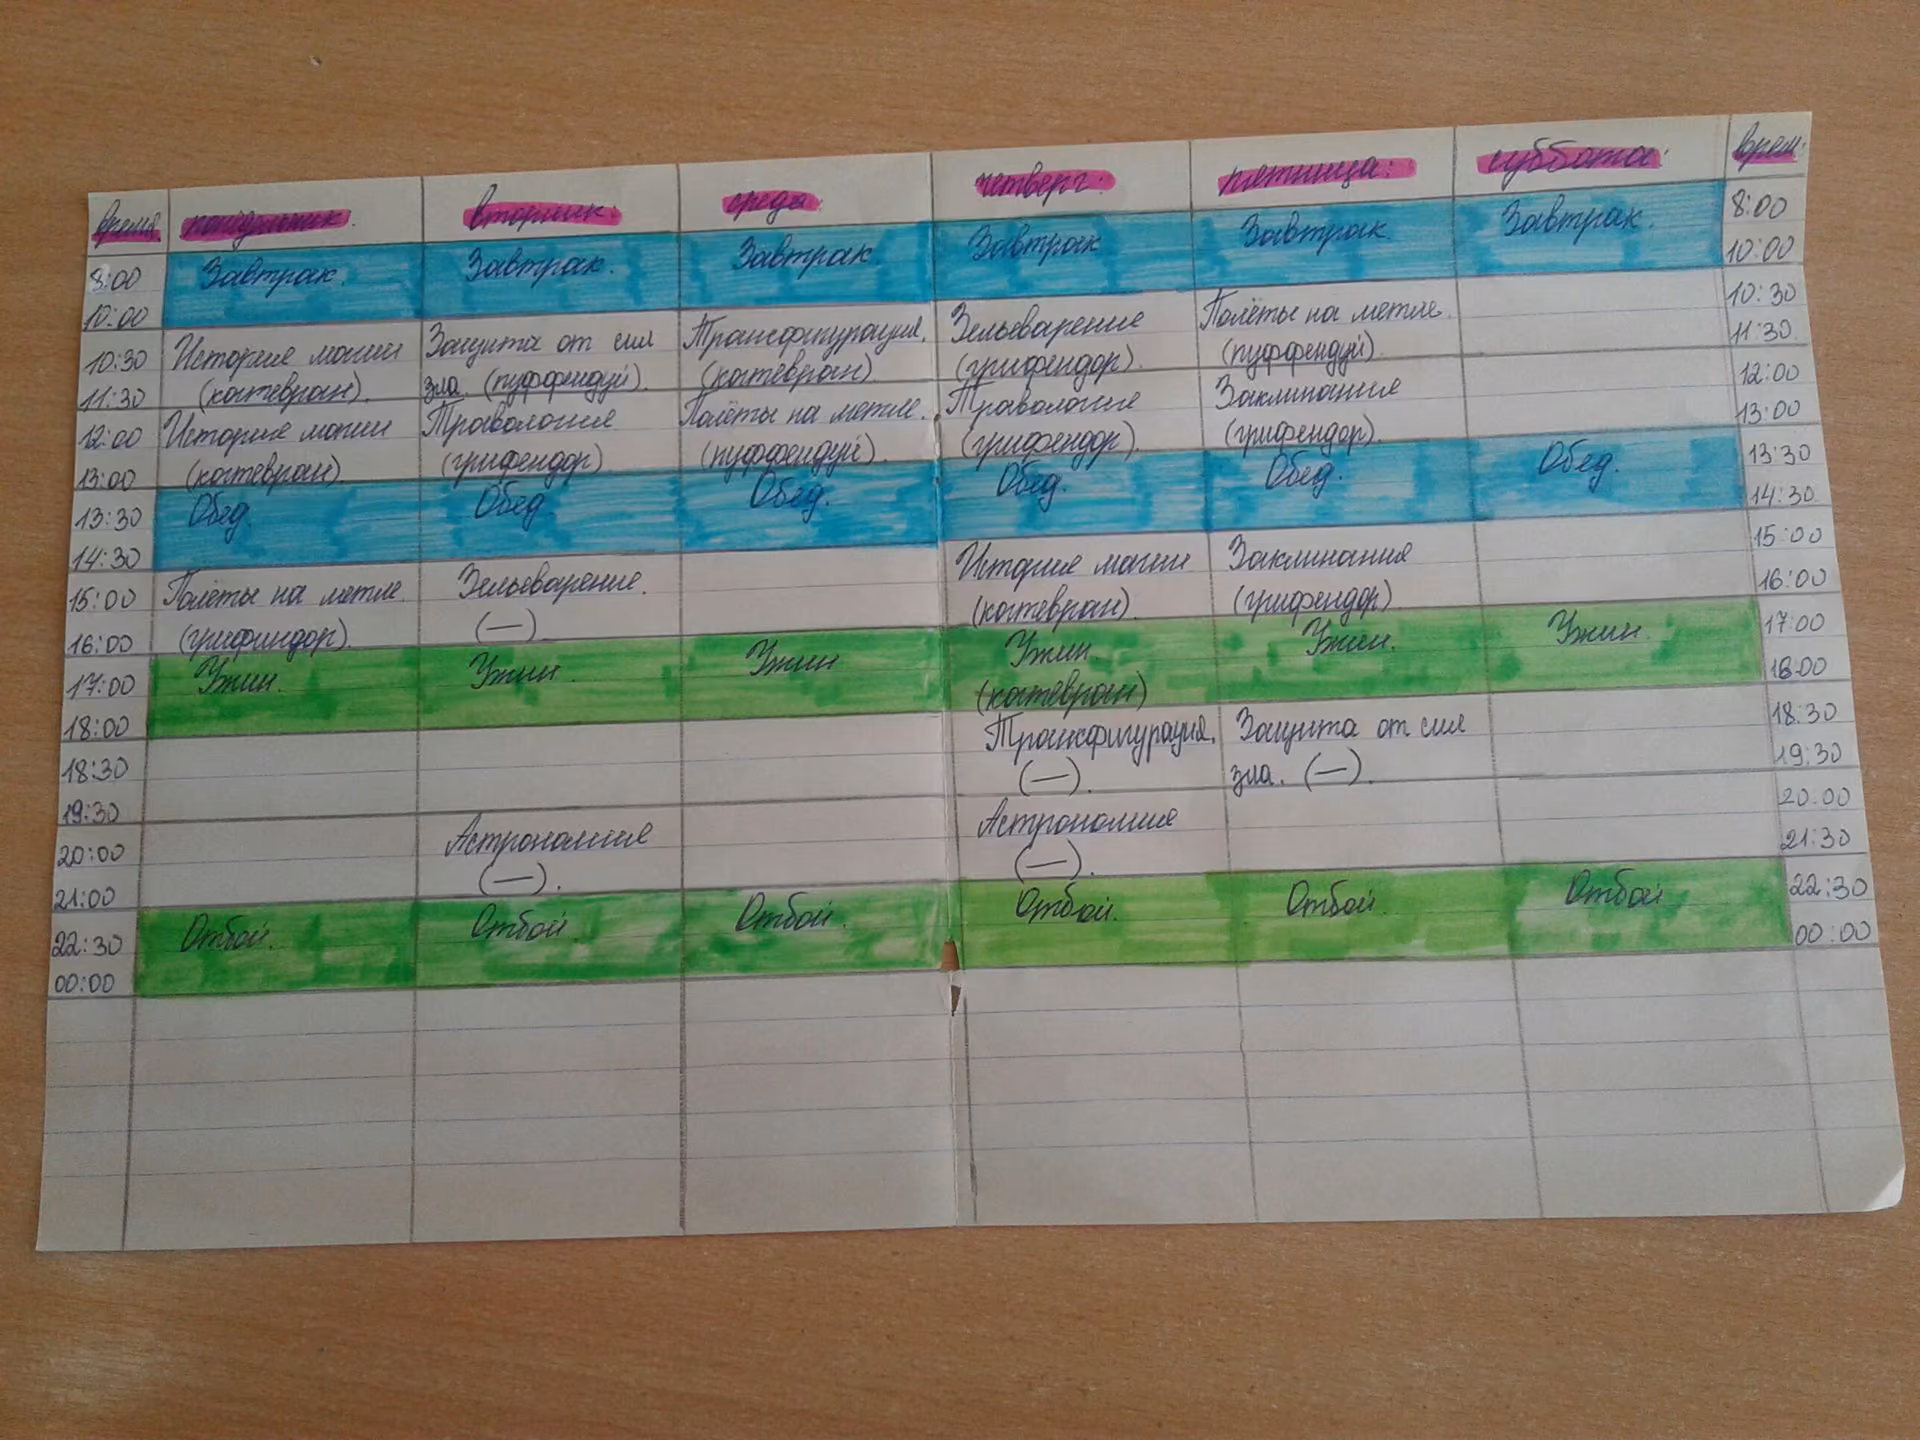 время. понедельник. вторник: среда: четверг: пятница: суббота: врем.
8:00 Завтрак. Завтрак. Завтрак. Завтрак Завтрак Завтрак. 8:00
10:00 10:00
10:30 История магии Защита от сил Трансфигурация. Зельеварение Полёты на метле. 10:30
11:30 (когтевран). зла. (пуффендуй). (когтевран). (грифендор). (пуффендуй). 11:30
12:00 История магии Травология Полёты на метле. Травология Заклинания 12:00
13:00 (когтевран). (грифендор) (пуффендуй). (грифендор). (грифендор). 13:00
13:30 Обед. Обед. Обед. Обед. Обед. Обед. 13:30
14:30 14:30
15:00 Полёты на метле. Зельеварение. История магии Заклинания 15:00
16:00 (грифиндор). (—) (когтевран). (грифендор). 16:00
17:00 Ужин. Ужин. Ужин Ужин. Ужин. Ужин. 17:00
18:00 (когтевран) 18:00
18:30 Трансфигурация. Защита от сил 18:30
19:30 (—). зла. (—). 19:30
20:00 Астрономия Астрономия 20:00
21:00 (—). (—). 21:30
22:30 Отбой. Отбой. Отбой. Отбой. Отбой. Отбой 22:30
00:00 00:00